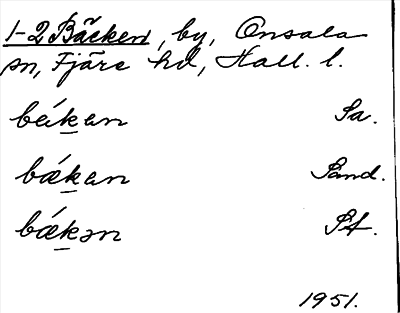 1-2 Bäcken, by, Onsala
sn, Fjäre hd, Hall. l.
bákan Sa.
bǽkan Sand.
bǽkən St.
1951.